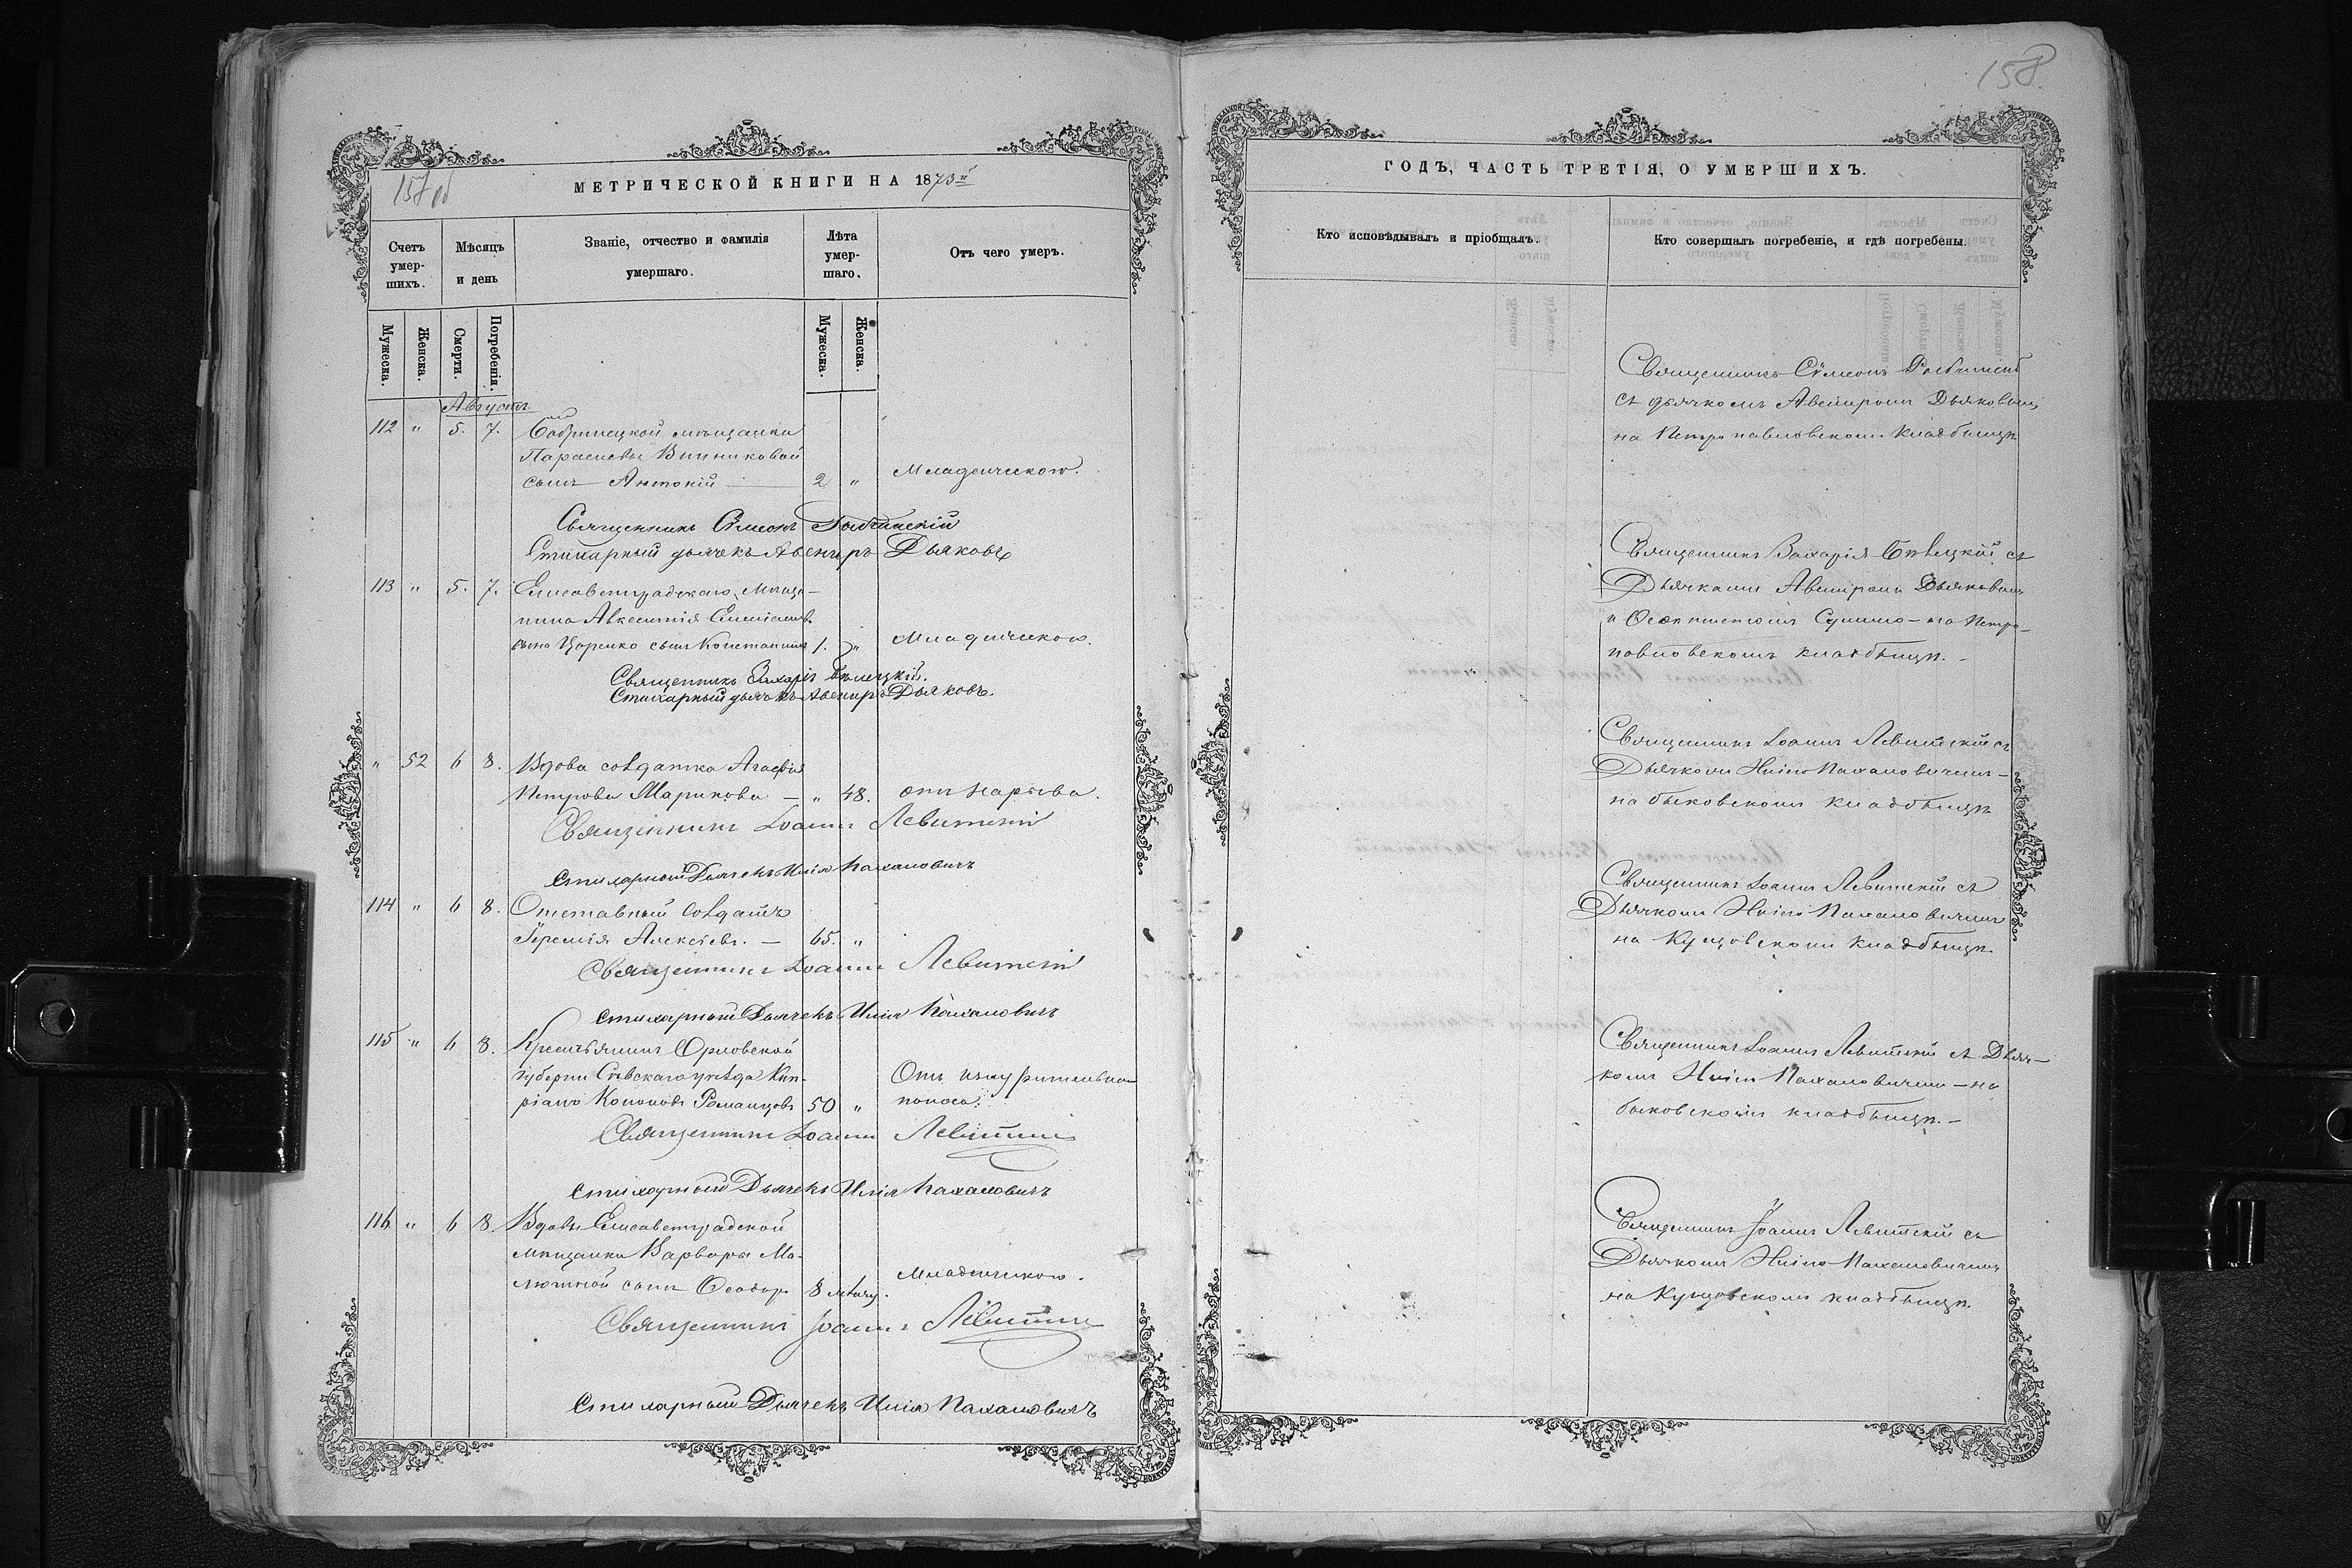 157 об
МЕТРИЧЕСКОЙ КНИГИ НА 1873й
Счетъ умер-шихъ.
Мѣсяцъ и день
Званіе, отчество и фамилія умершаго.
Лѣта умер-шаго.
Отъ чего умеръ.
Мужеска.
Женска.
Смерти.
Погребенія.
Мужеска.
Женска.
Августъ
112 " 5. 7. Бобринецкой мѣщанки
Винниковой
сынъ Антоній 2 " Младенческою.
Священникъ Сѵмеонъ
Стихарный дьячекъ Авениръ Дьяковъ
113 " 5. 7. Елисаветградскаго мѣща-
нина Авксентія
сына Царенко сынъ Константинъ 1. " Младенческою.
Священникъ Захарія Бѣлецкій.
Стихарный дьячекъ Авениръ Дьяковъ.
" 52 6 8. Вдова солдатка Агафія
Петрова Марикова — " 48. отъ нарыва.
Священникъ Іоаннъ Левитскій
Стихарный Дьячекъ Илія Пахаловичъ
114 " 6 8. Отставный солдатъ
Іеремія Алексѣевъ. — 65. "
Священникъ Іоаннъ Левитскій
Стихарный Дьячекъ Илія Пахаловичъ
115 " 6 8. Крестьянинъ Орловской
губерніи Сѣвскаго уѣзда Кип-
ріанъ Кононовъ Романцовъ 50 " Отъ изнурительнаго
поноса.
Священникъ Іоаннъ Левитскій
Стихарный Дьячекъ Илія Пахаловичъ
116 " 6 8. Вдовы Елисаветградской
мѣщанки Варвары Ма-
лютиной сынъ Ѳеодоръ 8 мѣсяц. Младенческою.
Священникъ Іоаннъ Левитскій
Стихарный Дьячекъ Илія Пахаловичъ
158.
ГОДЪ, ЧАСТЬ ТРЕТІЯ, О УМЕРШИХЪ.
Кто исповѣдывалъ и пріобщалъ.
Кто совершалъ погребеніе, и гдѣ погребены.
Священникъ Сѵмеонъ
съ дьячкомъ Авениромъ Дьяковымъ
на Петропавловскомъ кладбищѣ
Священникъ Захарія Бѣлецкій съ
Дьячками Авениромъ Дьяковымъ
и Ѳеоктистомъ на Петро-
павловскомъ кладбищѣ. —
Священникъ Іоаннъ Левитскій съ
Дьячкомъ Иліею Пахаловичемъ —
на быковскомъ кладбищѣ
Священникъ Іоаннъ Левитскій съ
Дьячкомъ Иліею Пахаловичемъ
на Кущовскомъ кладбищѣ.
Священникъ Іоаннъ Левитскій съ Дьяч-
комъ Иліею Пахаловичемъ — на
быковскомъ кладбищѣ. —
Священникъ Іоаннъ Левитскій съ
Дьячкомъ Иліею Пахаловичемъ
на Кущовскомъ кладбищѣ.